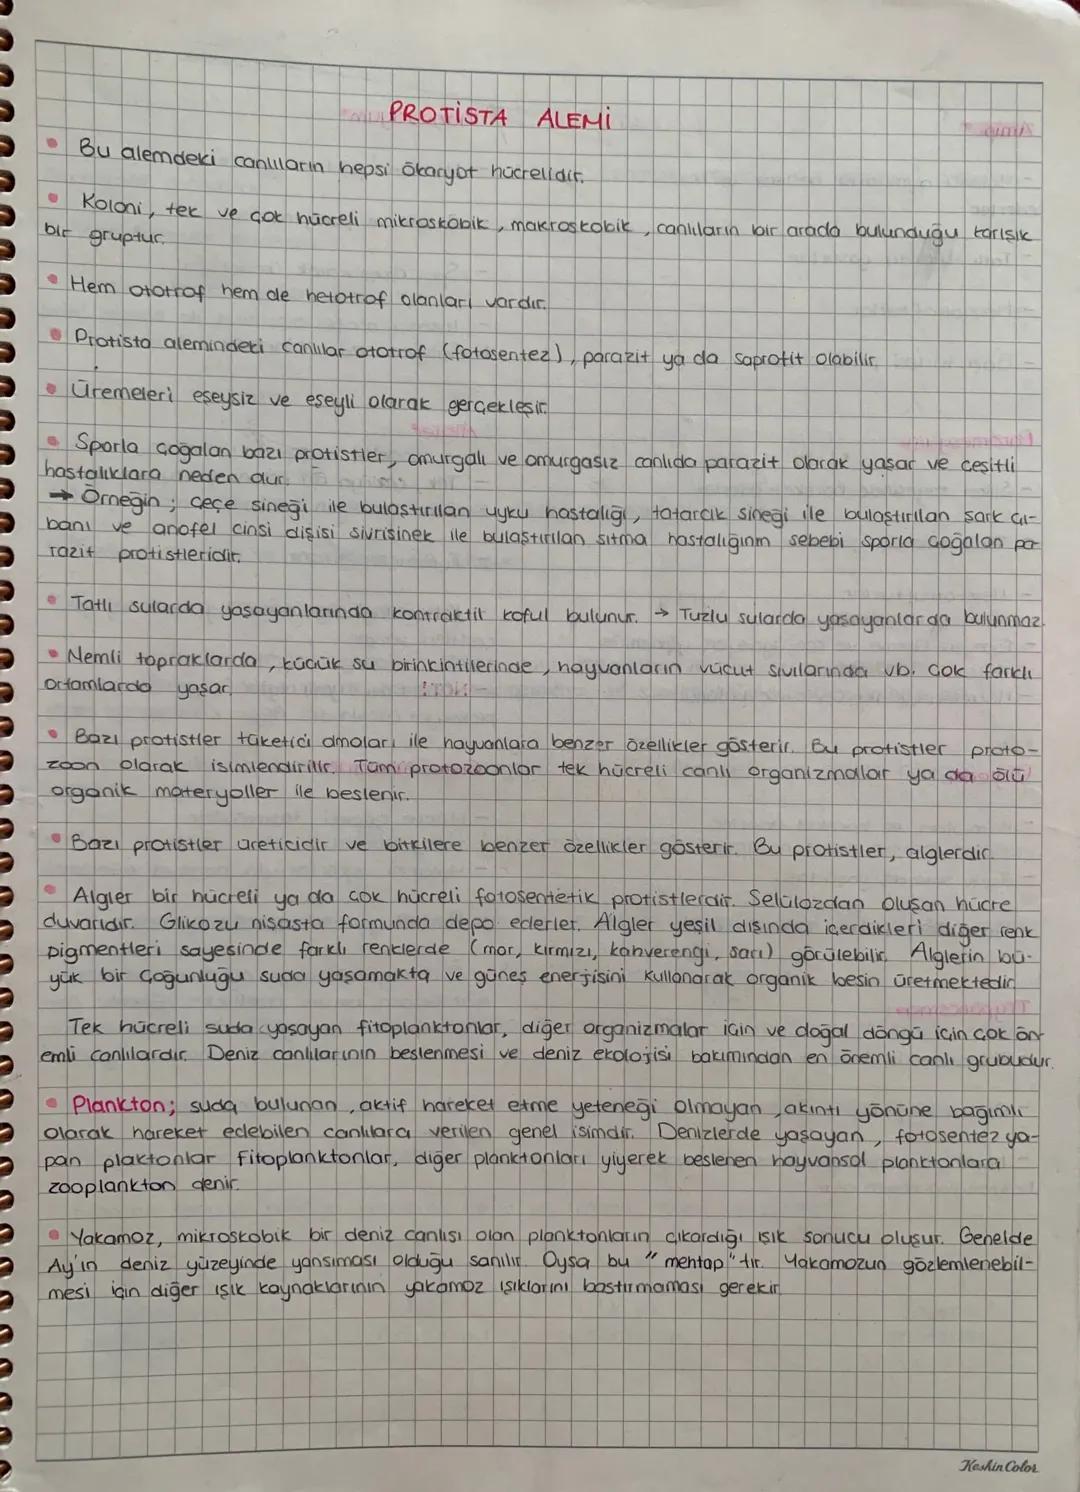 PROTİSTA ALEMİ
• Bu alemdeki canlıların hepsi ökaryot hücrelidir.
• Koloni, tek ve çok hücreli mikroskobik, makroskobik, canlıların bir arada bulunduğu karışık
bir gruptur.
• Hem ototrof hem de hetotrof olanları vardır.
• Protista alemindeki canlılar ototrof (fotosentez), parazit ya da saprofit olabilir.
• Üremeleri eşeysiz ve eşeyli olarak gerçekleşir.
• Sporla çoğalan bazı protistler, omurgalı ve omurgasız canlıda parazit olarak yaşar ve çeşitli
hastalıklara neden olur.
→ Örneğin; çeçe sineği ile bulaştırılan uyku hastalığı, tatarcık sineği ile bulaştırılan şark çı-
banı ve anofel cinsi dişisi sivrisinek ile bulaştırılan sıtma hastalığının sebebi sporla çoğalan pa-
razit protistleridir.
• Tatlı sularda yaşayanlarında kontraktil koful bulunur. → Tuzlu sularda yaşayanlarda bulunmaz.
• Nemli topraklarda, küçük su birinkintilerinde, hayvanların vücut sıvılarında vb. çok farklı
ortamlarda yaşar.
• Bazı protistler tüketici olmaları ile hayvanlara benzer özellikler gösterir. Bu protistler proto-
zoon olarak isimlendirilir. Tüm protozoonlar tek hücreli canlı organizmalar ya da ölü
organik materyaller ile beslenir.
• Bazı protistler üreticidir ve bitkilere benzer özellikler gösterir. Bu protistler, alglerdir.
• Algler bir hücreli ya da çok hücreli fotosentetik protistlerdir. Selülozdan oluşan hücre
duvarıdır. Glikozu nişasta formunda depo ederler. Algler yeşil dışında içerdikleri diğer renk
pigmentleri sayesinde farklı renklerde (mor, kırmızı, kahverengi, sarı) görülebilir. Alglerin bü-
yük bir çoğunluğu suda yaşamakta ve güneş enerjisini kullanarak organik besin üretmektedir.
Tek hücreli suda yaşayan fitoplanktonlar, diğer organizmalar için ve doğal döngü için çok ön-
emli canlılardır. Deniz canlılarının beslenmesi ve deniz ekolojisi bakımından en önemli canlı grubudur.
• Plankton; suda bulunan, aktif hareket etme yeteneği olmayan, akıntı yönüne bağımlı
olarak hareket edebilen canlılara verilen genel isimdir. Denizlerde yaşayan, fotosentez ya-
pan plaktonlar fitoplanktonlar, diğer planktonları yiyerek beslenen hayvansal planktonlara
zooplankton denir.
• Yakamoz, mikroskobik bir deniz canlısı olan planktonların çıkardığı ışık sonucu oluşur. Genelde
Ay'ın deniz yüzeyinde yansıması olduğu sanılır. Oysa bu "mehtap"tır. Yakamozun gözlemlenebil-
mesi için diğer ışık kaynaklarının yakamoz ışıklarını bastırmaması gerekir.
Keskin Color